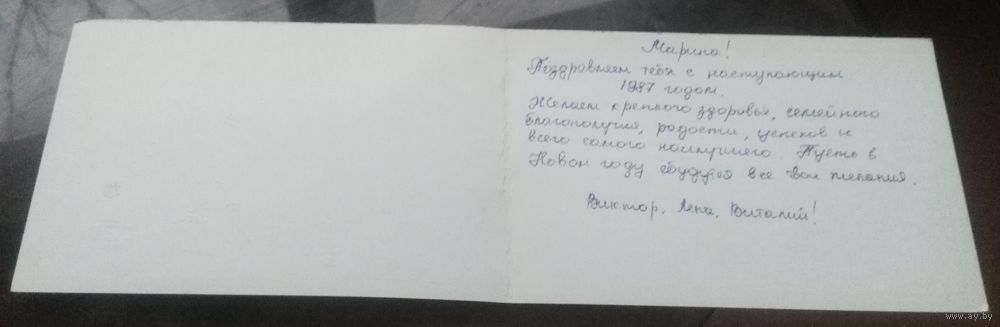 Марина!
Поздравляем тебя с наступающим
1987 годом.
Желаем крепкого здоровья, семейного
благополучия, радости, успехов и
всего самого наилучшего. Пусть в
Новом году сбудутся все твои желания.
Виктор, Лена, Виталий!
www.ay.by